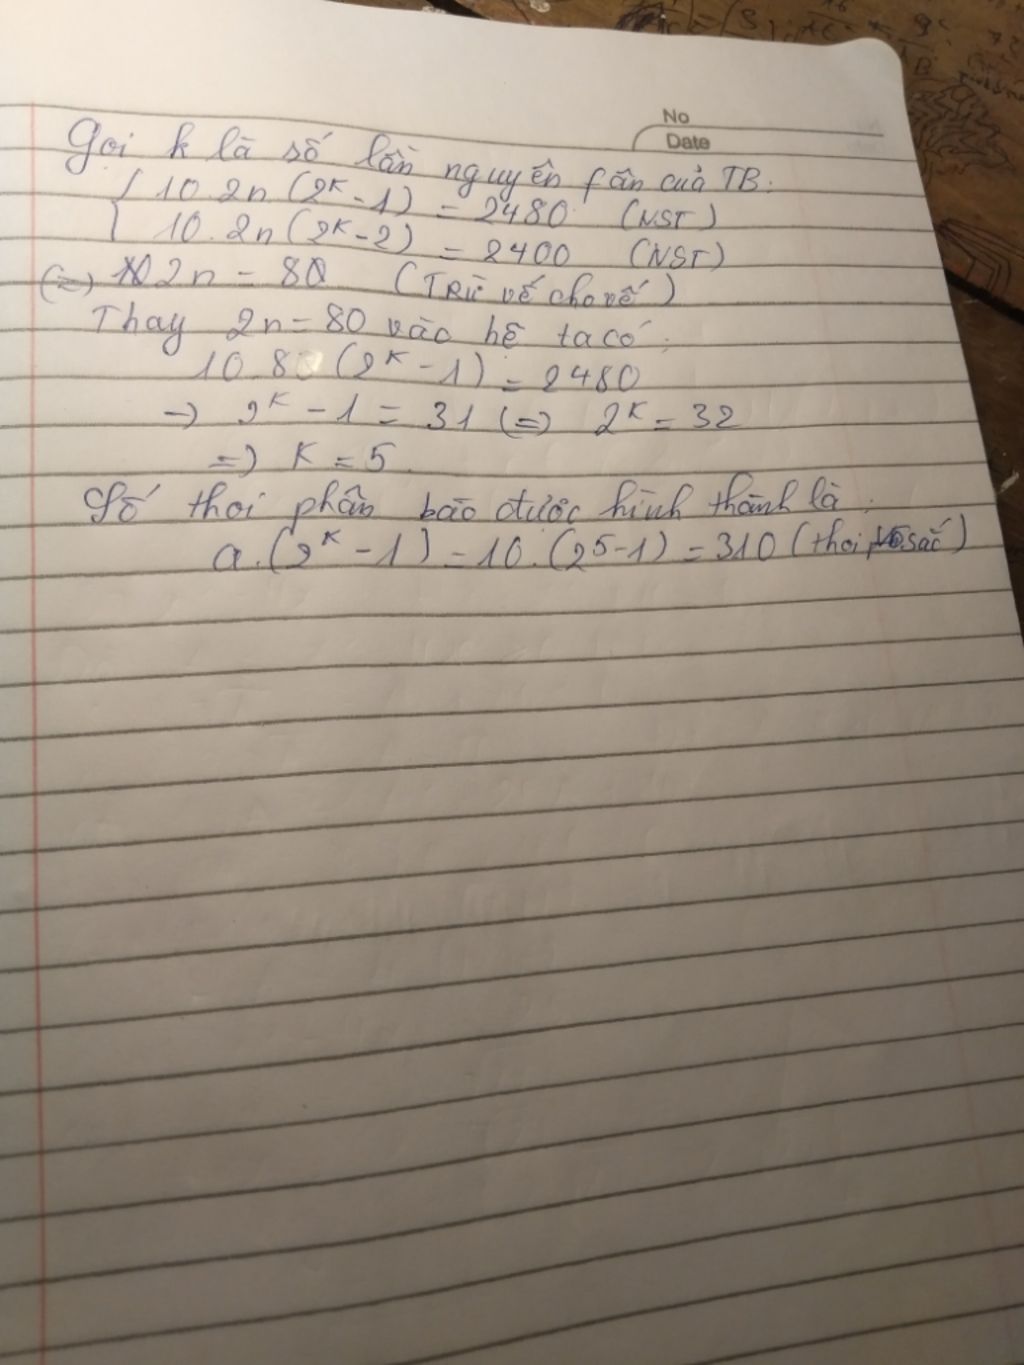 No
Date
Gọi k là số lần nguyên fân của TB:
10.2n(2^k-1) = 2480 (NST)
10.2n(2^k-2) = 2400 (NST)
(=) 2n = 80 (Trừ vế cho vế)
Thay 2n = 80 vào hệ ta có:
10.80(2^k-1) = 2480
→ 2^k-1 = 31 (=) 2^k = 32
=) k = 5
Số thoi phân bào được hình thành là:
a.(2^k-1) = 10.(2^5-1) = 310 (thoi sắc)